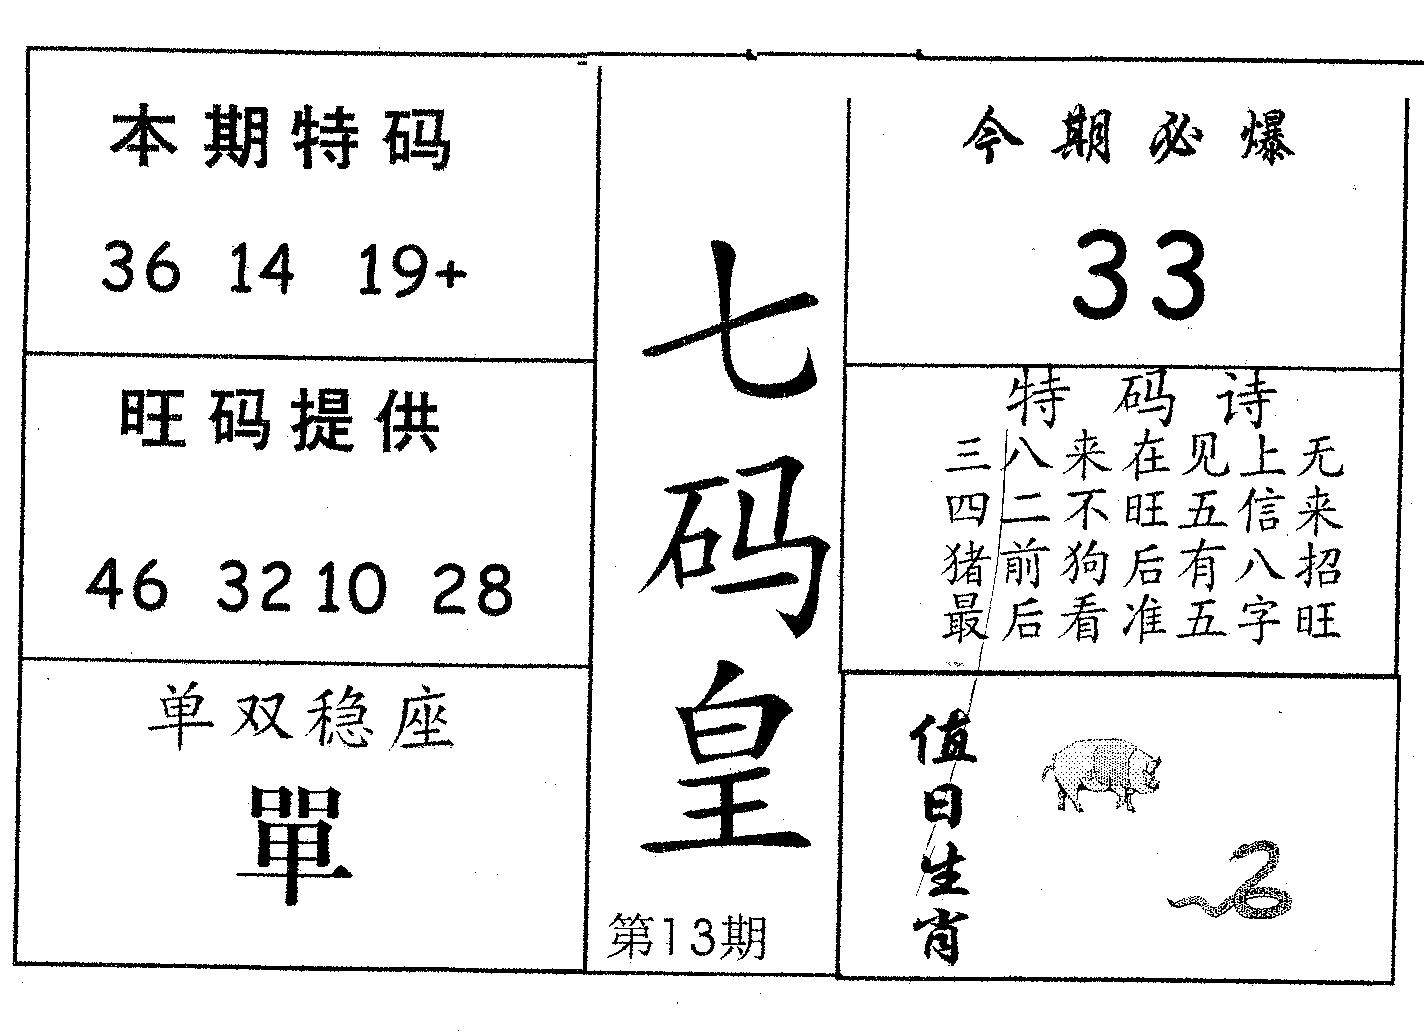 本期特码
36 14 19+
旺码提供
46 32 10 28
单双稳座
單
七码皇
第13期
今期必爆
33
特码诗
三八来在见上无
四二不旺五信来
猪前狗后有八招
最后看准五字旺
值日生肖